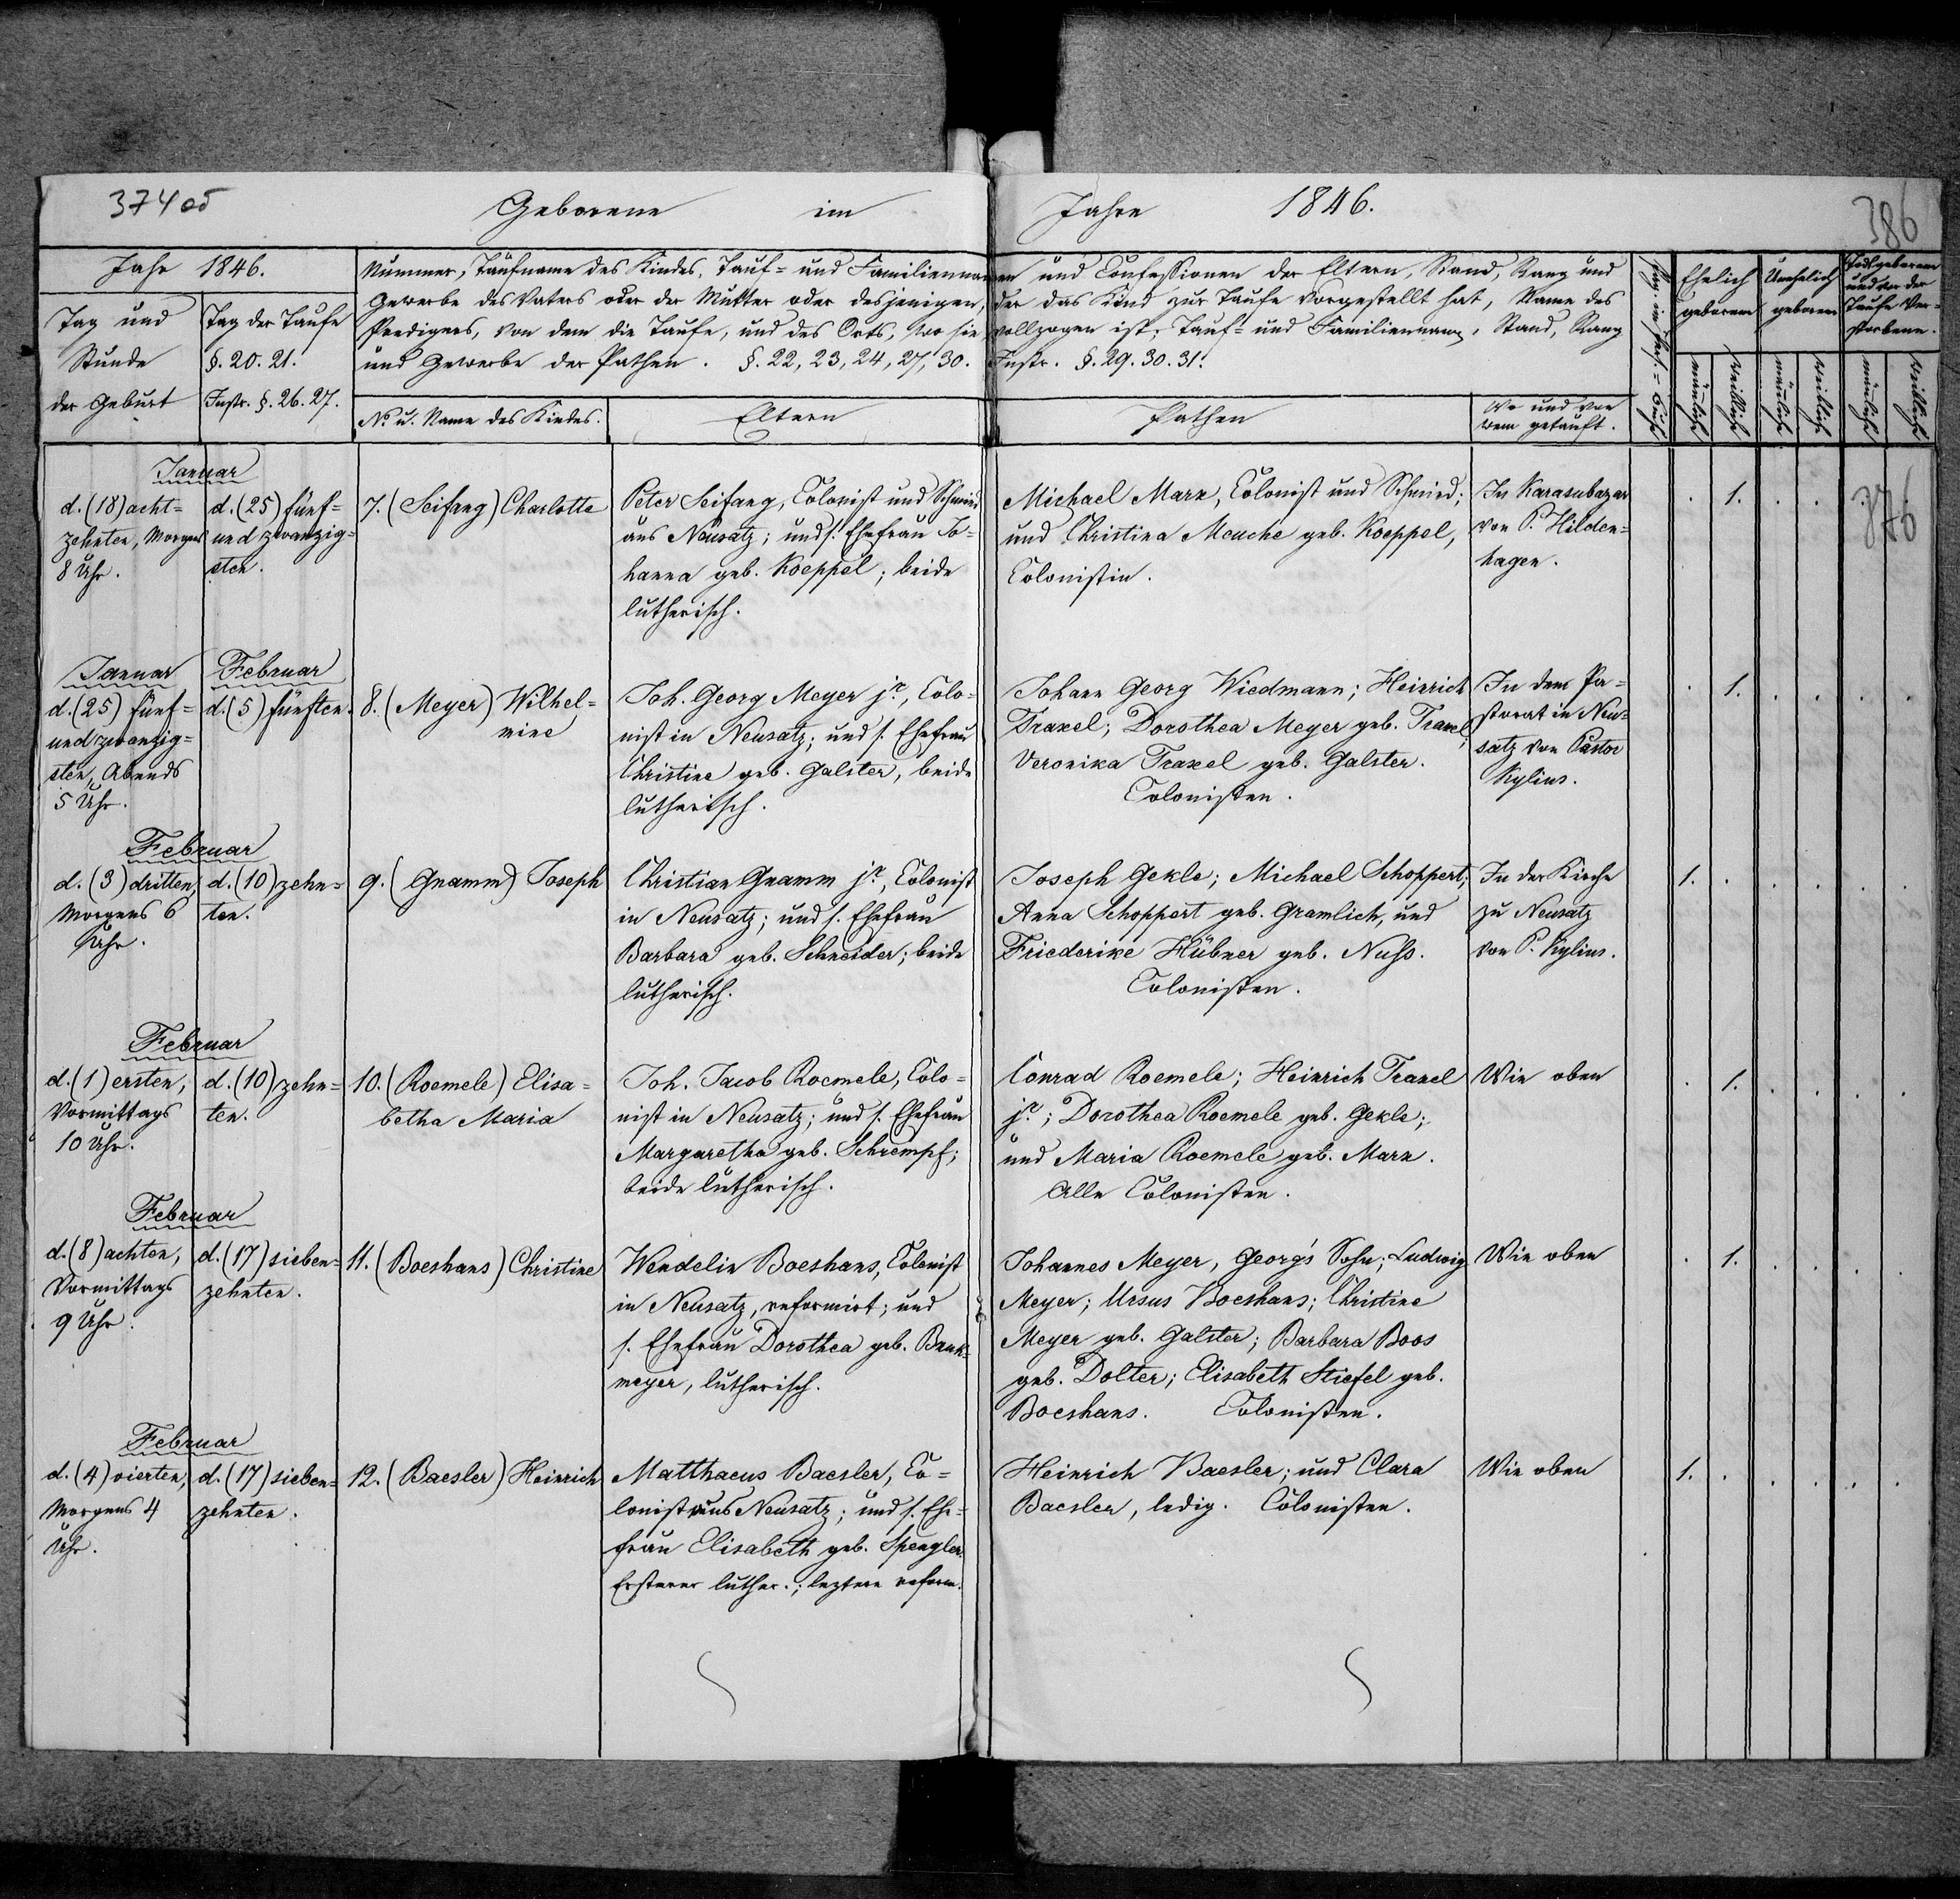 374 об
Geborene im Jahre 1846.
386
Jahr 1846.
Tag und
Stunde
der Geburt
Tag der Taufe
§. 20. 21.
Instr. §. 26. 27.
Nummer, Taufname des Kindes, Tauf= und Familiennamen und Confessionen der Eltern, Stand, Rang und
Gewerbe des Vaters oder der Mutter oder desjenigen, der das Kind zur Taufe vorgestellt hat, Name des
Predigers, von dem die Taufe, und des Orts, wo sie vollzogen ist; Tauf= und Familienname, Stand, Rang
und Gewerbe der Pathen. §. 22, 23, 24, 27, 30. Instr. §. 29. 30. 31.
No. u. Name des Kindes.
Eltern
Pathen
Wo und von
wem getauft.
Ehelich
geboren
Unehelich
geboren
Todtgeborene
und vor der
Taufe Ver=
storbene.
männlich
weiblich
männlich
weiblich
männlich
weiblich
Januar
d. (18) acht=
zehnten, Morgens
8 Uhr.
d. (25) fünf=
und zwanzig=
sten.
7. (Seifang) Charlotte
Peter Seifang, Colonist und Schmied
aus Neusatz; und s. Ehefrau Jo=
hanna geb. Koeppel; beide
lutherisch.
Michael Marx, Colonist und Schmied;
und Christina Meuche geb. Koeppel,
Colonistin.
In Karasubazar
von P. Hilden=
hagen.
1.
376
Januar
d. (25) fünf=
und zwanzig=
sten, Abends
5 Uhr.
Februar
d. (5) fünften.
8. (Meyer) Wilhel=
mine
Joh. Georg Meyer jr., Colo=
nist in Neusatz; und s. Ehefrau
Christine geb. Galster, beide
lutherisch.
Johann Georg Wiedmann; Heinrich
Traxel; Dorothea Meyer geb. Traxel;
Veronika Traxel geb. Galster.
Colonisten.
In dem Pa=
storat in Neu=
satz von Pastor
Kylius.
1.
Februar
d. (3) dritten,
Morgens 6
Uhr.
d. (10) zehn=
ten.
9. (Gnamm) Joseph
Christian Gnamm jr., Colonist
in Neusatz; und s. Ehefrau
Barbara geb. Schneider; beide
lutherisch.
Joseph Gekle; Michael Schoppert;
Anna Schoppert geb. Gramlich, und
Friederike Hübner geb. Nuss.
Colonisten.
In der Kirche
zu Neusatz
von P. Kylius.
1.
Februar
d. (1) ersten,
Vormittags
10 Uhr.
d. (10) zehn=
ten.
10. (Roemele) Elisa=
betha Maria
Joh. Jacob Roemele, Colo=
nist in Neusatz; und s. Ehefrau
Margaretha geb. Schrempf;
beide lutherisch.
Conrad Roemele; Heinrich Traxel
jr.; Dorothea Roemele geb. Gekle;
und Maria Roemele geb. Marx.
Alle Colonisten.
Wie oben
1.
Februar
d. (8) achten,
Vormittags
9 Uhr.
d. (17) sieben=
zehnten.
11. (Boeshans) Christine
Wendelin Boeshans, Colonist
in Neusatz, reformirt; und
s. Ehefrau Dorothea geb.
meyer, lutherisch.
Johannes Meyer, Georg's Sohn; Ludwig
Meyer; Ursus Boeshans; Christine
Meyer geb. Galster; Barbara Boos
geb. Dolter; Elisabeth Stiefel geb.
Boeshans. Colonisten.
Wie oben
1.
Februar
d. (4) vierten,
Morgens 4
Uhr.
d. (17) sieben=
zehnten.
12. (Baesler) Heinrich
Matthaeus Baesler, Co=
lonist aus Neusatz; und s. Ehe=
frau Elisabeth geb. Spengler.
Ersterer luther.; leztere reform.
Heinrich Baesler; und Clara
Baesler, ledig. Colonisten.
Wie oben
1.